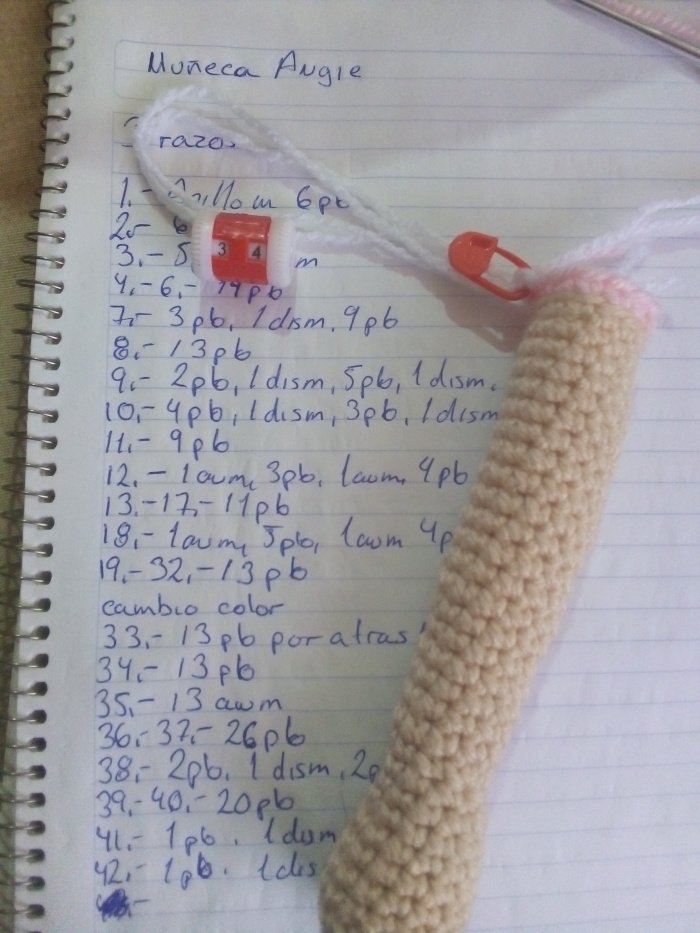 Muñeca Angie
razos
1.- Anillo m 6pb
2.- 6
3.- 5 m
3 4
4.-6.- 14pb
7.- 3pb, 1dism, 9pb
8.- 13pb
9.- 2pb, 1dism, 5pb, 1dism.
10.- 4pb, 1dism, 3pb, 1dism
11.- 9pb
12.- 1aum, 3pb, 1aum, 4pb
13.-17.- 11pb
18.- 1aum, 5pb, 1aum 4p
19.-32.- 13pb
cambio color
33.- 13pb por atras
34.- 13pb
35.- 13 aum
36.-37.- 26pb
38.- 2pb, 1dism, 2p
39.-40.- 20pb
41.- 1pb. 1dism
42.- 1pb. 1dis